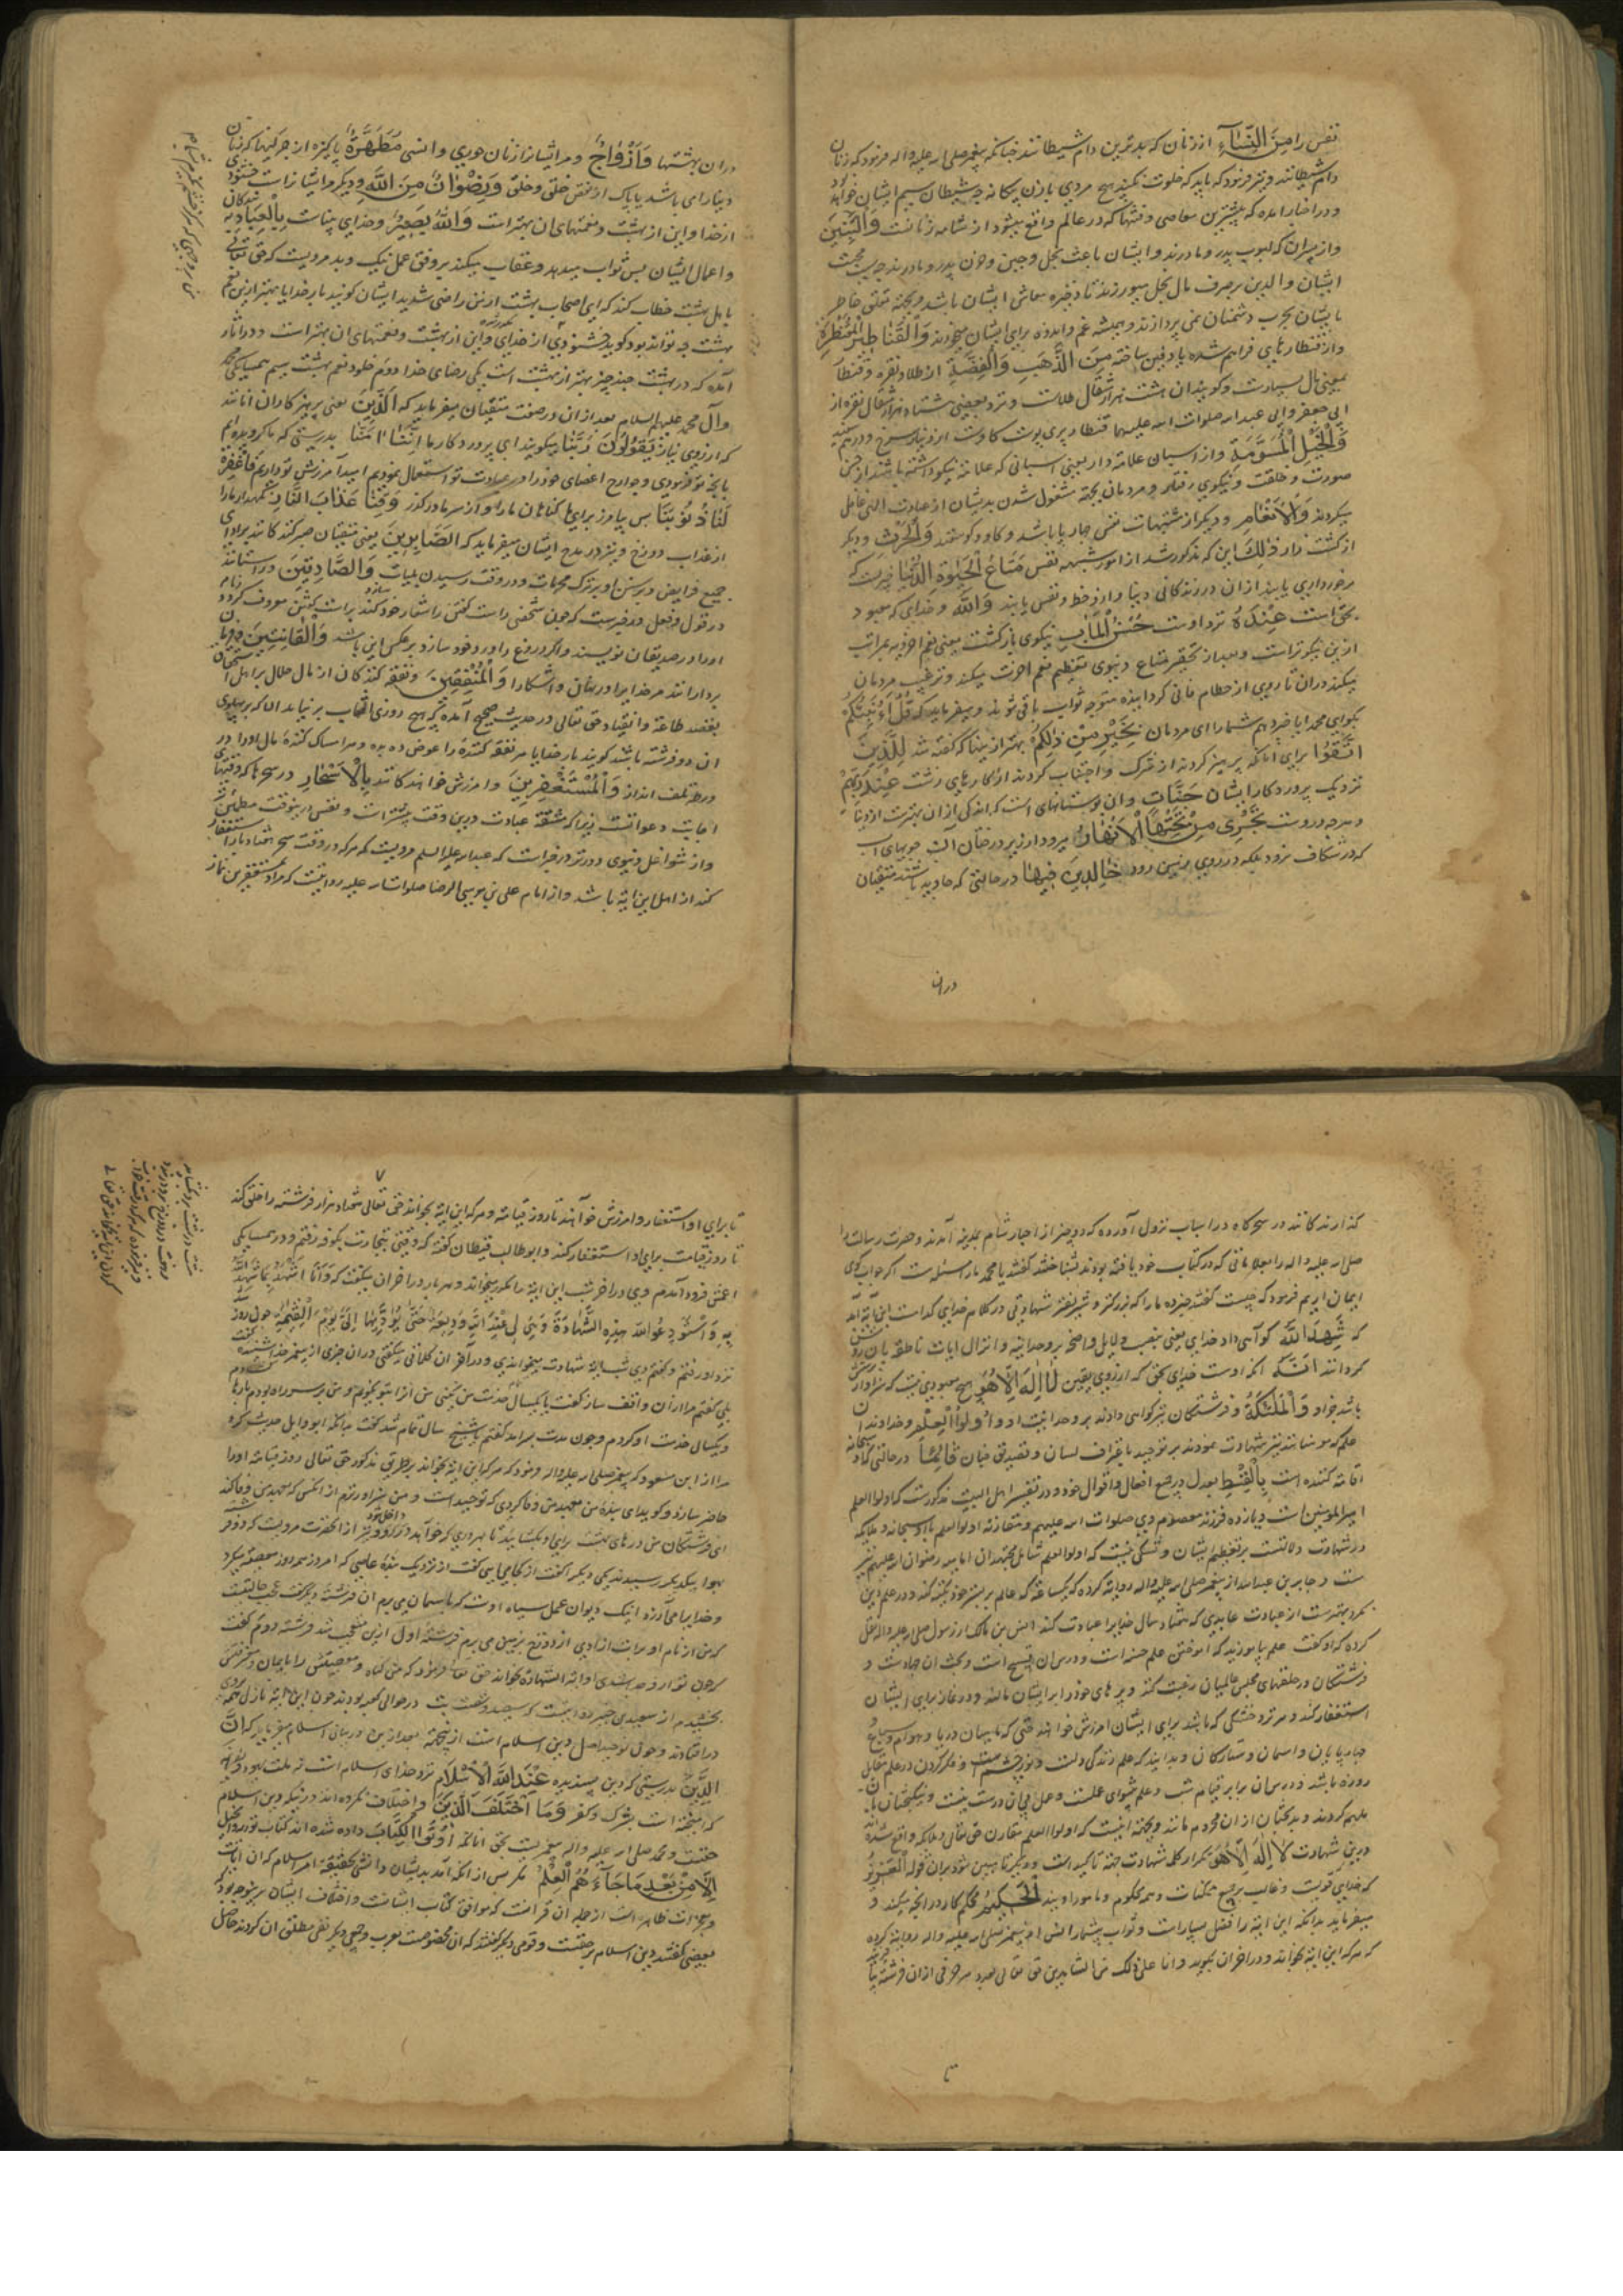 نفس را مِنَ النِّسَآءِ از زنان که بدترین دام شیطانند چنانکه پیغمبر صلی الله علیه و آله فرمود که زنان
دام شیطانند و نیز فرمود که باید که خلوت نکنید هیچ مردی با زن بیکانه چه شیطان سیم ایشان خواهد بود
و در اخبار آمده که بیشترین معاصی و فتنها که در عالم واقع میشود از شامه زنانست وَالْبَنِینَ
و از پسران که محبوب پدر و مادرند و ایشان باعث بخل و جبن و حزن پدر و مادرند جهت محبت
ایشان والدین بر صرف مال بخل میورزند تا ذخیره معاش ایشان باشد و بجهة تعلق خاطر
بایشان بحرب دشمنان نمی پردازند و همیشه غم و اندوه برای ایشان میخورند وَالْقَنَاطِیرِ الْمُقَنْطَرَةِ
و از قنطارهای فراهم شده یا دفین ساخته مِنَ الذَّهَبِ وَالْفِضَّةِ از طلا و نقره و قنطار
بمعنی مال بسیارست و کویند ان هشت هزار مثقال طلاست و نزد بعضی هشتاد هزار مثقال نقره و از
ابی جعفر و ابی عبد الله صلوات الله علیهما قنطار پری پوست کاوست از دینار سرخ و درهم سفید
وَالْخَیْلِ الْمُسَوَّمَةِ و از اسبان علامة دار یعنی اسبانی که علامة نیکو داشته باشند از حسن
صورت و خلقت و نیکوی رفتار و مردمان بجهة مشغول شدن بدیشان از عبادت الهی غافل
میکردند وَالْاَنْعَامِ و دیکر از مشتهیات نفس چارپایا باشد و کاو و کوسفند وَالْحَرْثِ و دیکر
از کشت زار ذٰلِکَ این که مذکور شد از امور مشتهیه نفس مَتَاعُ الْحَیٰوةِ الدُّنْیَا چیزیست که
برخورداری یابند ازان در زندکانی دنیا و از و حظ نفس یابند وَاللّٰهُ و خدای که معبود
بحق است عِنْدَهُ نزد اوست حُسْنُ الْمَاٰبِ نیکوی بازکشت یعنی نعم اخرویه بمراتب
ازین نیکوتر است و بعد از تحقیر متاع دنیوی تعظیم نعم اخرت میکند و ترغیب مردمان
میکند دران تا روی از حطام فانی کردانیده متوجه ثواب باقی شوند و میفرماید که قُلْ اَؤُنَبِّئُکُمْ
بکوای محمد ایا خبر دهم شما را ای مردمان بِخَیْرٍ مِنْ ذٰلِکُمْ بهتر از ینها که کفته شد لِلَّذِینَ
اتَّقَوْا برای آنانکه پرهیز کردند از شرک و اجتناب کردند از کارهای زشت عِنْدَ رَبِّهِمْ
نزدیک پروردکار ایشان جَنَّاتٍ و ان بوستانهای است که اندکی ازان بهترست از دنیا
و هر چه دروست تَجْرِی مِنْ تَحْتِهَا الْاَنْهَارُ میرود از زیر درختان آن جویهای اب
که در شکاف نرود بلکه در روی زمین رود خَالِدِینَ فِیهَا در حالتی که جاوید باشند متقیان
دران
دران بهشتها وَاَزْوَاجٌ و مر ایشانرا زنان حوری و انسی مُطَهَّرَةٌ پاکیزه از چرکینها که زنان
دنیا را می باشد یا پاک از نقص خلق و خلق وَرِضْوَانٌ مِنَ اللّٰهِ و دیکر مر ایشانراست خشنودی
از خدا و این از بهشت و نعمتهای ان بهتر است وَاللّٰهُ بَصِیرٌ و خدای بیناست بِالْعِبَادِ به بندکان
و اعمال ایشان پس ثواب میدهد و عقاب میکند بر وفق عمل نیک و بد مرویست که حق تعالی
باهل بهشت خطاب کند که ای اصحاب بهشت از من راضی شدید ایشان کویند بار خدایا بهتر ازین نعیم
بهشت چه تواند بود کوید خشنودی از خدای و این از بهشت و نعمتهای ان بهتر است و در اثار
آمده که در بهشت چند چیز بهتر از بهشت است یکی رضای خدا دوم خلود نعم بهشت سیم همسایکی محمد
و آل محمد علیهم السلام بعد از ان در صفت متقیان میفرماید که اَلَّذِینَ یعنی پرهیزکاران آنانند
که از روی نیاز یَقُولُونَ رَبَّنَا میکویند ای پروردکار ما اِنَّنَا اٰمَنَّا بدرستی که ما کرویده ایم
بانچه تو فرمودی و جوارح اعضای خود را در عبادت تو استعمال نمودیم امید آمرزش تو داریم فَاغْفِرْ
لَنَا ذُنُوبَنَا پس بیامرز برای ما کناهان ما را و از سر ما درکذر وَقِنَا عَذَابَ النَّارِ نکهدار ما را
از عذاب دوزخ و نیز در مدح ایشان میفرماید که الصَّابِرِینَ یعنی متقیان صبر کنندکانند بر ادای
جمیع فرایض و سنن و بر ترک محرمات و در وقت رسیدن بلیات وَالصَّادِقِینَ و راستانند
در قول و فعل و در خبرست که چون شخصی راست کفتن را شعار خود کند براست کفتن معروف کردد
او را در صدیقان نویسند و اکر دروغ را ورد خود سازد برعکس این باشد وَالْقَانِتِینَ و فرمان
بردارانند مر خدای را در نهان و اشکارا وَالْمُنْفِقِینَ و نفقه کنندکان از مال حلال بر اهل استحقاق
بقصد طاعة و انقیاد حق تعالی و در حدیث صحیح آمده که هیچ روزی افتاب بر نیاید الا که بر پهلوی
ان دو فرشته باشد کویند بار خدایا مر نفقه کننده را عوض ده و مر امساک کننده مال او را در
ورطه تلف انداز وَالْمُسْتَغْفِرِینَ و آمرزش خواهندکانند بِالْاَسْحَارِ در سحرها که وقتهای
اجابت دعوات است زیرا که مشقة عبادت درین وقت بیشتر است و نفس درینوقت مطمئن
و از شواغل دنیوی دورتر در خبر است که عبد الله علیه السلام مرویست که هر که در وقت سحر هفتاد بار استغفار
کند از اهل این آیه باشد و از امام علی بن موسی الرضا صلوات الله علیه روایتست که مراد مستغفرین نماز
کذارندکانند در سحرکاه در اسباب نزول آورده که دو حبر از احبار شام بمدینه آمدند و حضرت رسالت را
صلی الله علیه و اله را بعلاماتی که در کتاب خود یافته بودند بشناختند کفتند یا محمد ما را سئله است اکر جواب کوی
ایمان آریم فرمود که چیست کفتند خبر ده ما را که بزرکتر و شریفتر شهادتی در کلام خدای کدامست این آیه آمد
که شَهِدَ اللّٰهُ کواهی داد خدای یعنی بنصب دلایل واضحه بر وحدانیة و انزال ایات ناطقه بان روشن
کردانید اَنَّهُ انکه اوست خدای بحق که از روی یقین لَا اِلٰهَ اِلَّا هُوَ هیچ معبودی نیست که سزاوار پرستش
باشد جز او وَالْمَلٰئِکَةُ و فرشتکان نیز کواهی دادند بر وحدانیت او وَاُولُوا الْعِلْمِ و خداوندان
علم که مومنانند نیز شهادت نمودند بر توحید باعتراف لسان و تصدیق جنان قَائِمًا در حالتی که او سبحانه
اقامة کننده است بِالْقِسْطِ بعدل در جمیع افعال و اقوال خود و در تفسیر اهل البیت مذکورست که اولوا العلم
امیر المومنین است و یازده فرزند معصوم وی صلوات الله علیهم و مقارنه اولوا العلم با او سبحانه و ملایکه
در شهادت دلالتست بر تعظیم ایشان و شکی نیست که اولوا العلم شامل مجتهدان امامیه رضوان الله علیهم نیز
هست و جابر بن عبد الله از پیغمبر صلی الله علیه و اله روایة کرده که یکساعة که عالم بر بستر خود تکیه کند و در علم دین
نکرد بهترست از عبادت عابدی که هفتاد سال خدایرا عبادت کند انس بن مالک از رسول صلی الله علیه و اله نقل
کرده که او کفت علم بیاموزید که اموختن علم حسنه است و درس ان تسبیح است و بحث ان جهادست و
فرشتکان در حلقهای مجلس عالمان رغبت کنند و پرهای خود را بر ایشان مالند و در نماز برای ایشان
استغفار کنند و هر تر و خشکی که باشد برای ایشان امرزش خواهند حتی که ماهیان دریا و هوام و سباع
چارپایان و اسمان و ستارکان و بدانید که علم زندکی دلست و نور چشم است و فکر کردن در علم مقابل
روزه باشد و درس ان برابر قیام شب و علم پیشوای عملست و عمل بی ان درست نیست و نیکبختان بان
ملهم کردند و بدبختان از ان محروم مانند و بجهة اینست که اولوا العلم مقارن حق تعالی و ملایکه واقع شده
درین شهادت لَا اِلٰهَ اِلَّا هُوَ تکرار کلمه شهادت جهة تاکید است و دیکر تا مبین شود بران قوله الْعَزِیزُ
که خدای قویست و غالب بر جمیع ممکنات و همه محکوم و مامور اویند الْحَکِیمُ محکم کار در انچه میکند و
میفرماید بدانکه این ایة را فضل بسیارست و ثواب بیشمار انس از پیغمبر صلی الله علیه و اله روایة کرده
که هر که این ایة بخواند و در اخر ان بکوید و انا علی ذلک من الشاهدین حق تعالی بعدد هر حرفی ازان فرشته بیافریند
تا
تا برای او استغفار و امرزش خواهند تا روز قیامة و هر که این ایة بخواند حق تعالی هفتاد هزار فرشته را خلق کند
تا روز قیامت برای او استغفار کنند و ابو طالب قیطان کفته که وقتی بتجارت بکوفه رفتم و در همسایکی
اعمش فرود آمدم وی در اخر شب این ایة را مکرر میخواند و هر بار در اخر ان میکفت که وَاَنَا اَشْهَدُ بِمَا شَهِدَ اللّٰهُ
بِهِ وَاَسْتَوْدِعُ اللّٰهَ هٰذِهِ الشَّهَادَةَ وَهِیَ لِی عِنْدَ اللّٰهِ وَدِیعَةٌ حَتّٰی یُؤَدِّیهَا اِلَیَّ یَوْمَ الْقِیٰمَةِ چون روز شد
نزد او رفتم و کفتم دی شب ایة شهادت میخواندی و در اخر ان کلماتی میکفتی دران چیزی از پیغمبر خدا شنیده کفت
بلی کفتم مرا ازان واقف ساز کفت تا یکسال خدمت من نکنی من انرا بتو نکویم من بر سر راه بودم بارها
و یکسال خدمت او کردم و چون مدت بسر آمد کفتم یا شیخ سال تمام شد کفت بدانکه ابو وایل حدیث کرد
مرا از ابن مسعود که پیغمبر صلی الله علیه و اله فرمود که هر که این ایة بخواند بر طریق مذکور حق تعالی روز قیامة او را
حاضر سازد و کوید ای بنده من بعهد من وفا کردی که توحیدست و من سزاوارترم از انکس که بعهد من وفا کند
ای فرشتکان من درهای بهشت برای او بکشایید تا بهر دری که خواهد داخل شود و نیز از انحضرت مرویست که دو فرشته
بهوا بیکدیکر رسیدند یکی دیکر را کفت از کجا می ایی کفت از نزدیک بنده عاصی که امروز همه روز معصیة میکرد
و خدایرا می آزرد اینک دیوان عمل سیاه اوست که باسمان می برم ان فرشته دیکر کفت عجب حالتیست
که من از نام او برات ازادی از دوزخ بزمین می برم فرشته اول ازین متعجب شد فرشته دوم کفت
الدِّینَ بدرستی که دین پسندیده عِنْدَ اللّٰهِ الْاِسْلَامُ نزد خدای اسلام است نه ملت یهود و نصاری
که امیخته است بشرک و کفر وَمَا اخْتَلَفَ الَّذِینَ و اختلاف نکرده اند در نیکو دین اسلام
حقست و محمد صلی الله علیه و اله پیغمبریست بحق انانکه اُوتُوا الْکِتَابَ داده شده اند کتاب توریة و انجیل
اِلَّا مِنْ بَعْدِ مَا جَاءَهُمُ الْعِلْمُ مکر پس از انکه آمد بدیشان دانش بحقیقة امر اسلام که ان ایات
و معجزات ظاهره است از جمله ان قرآنست که موافق کتاب ایشانست و اختلاف ایشان برین وجه بود که
بعضی کفتند دین اسلام بر حقست و قومی دیکر کفتند که ان مخصوصست بعرب و جمعی دیکر نفی مطلق ان کردند حاصل